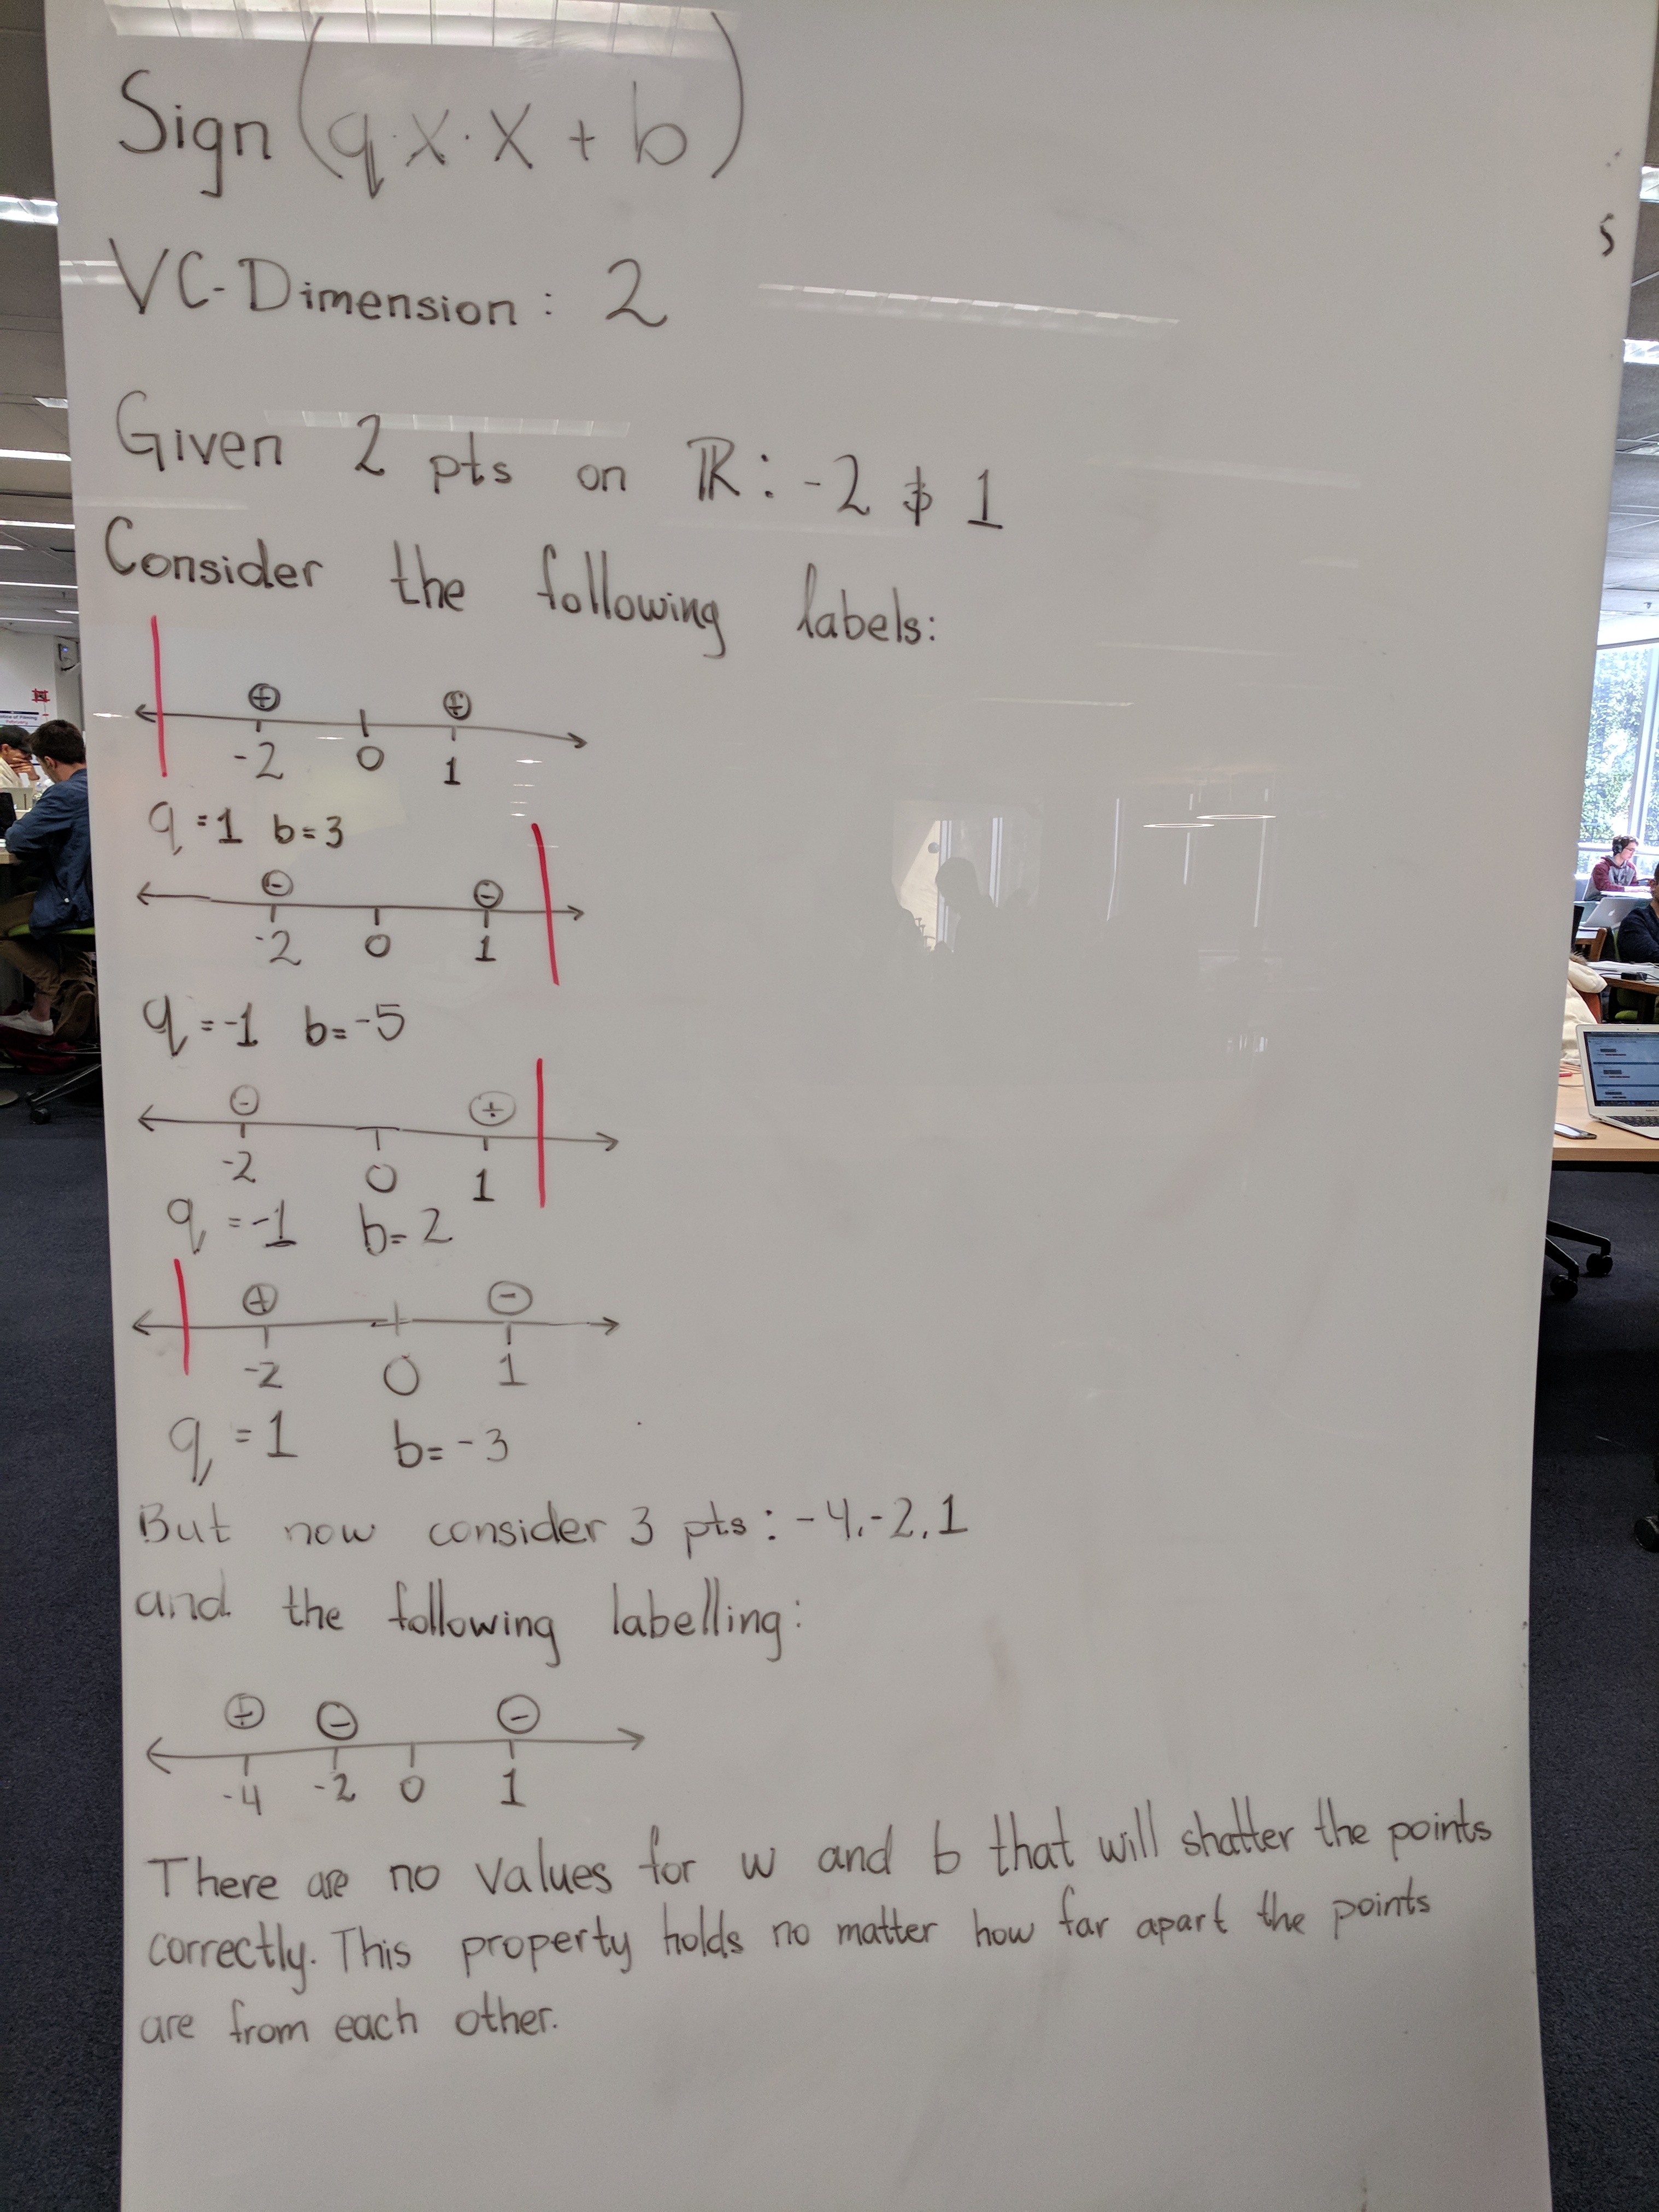 Sign (q·x·x + b)
VC-Dimension: 2
Given 2 pts on ℝ: -2 & 1
Consider the following labels:
⊕ ⊕
-2 0 1
q=1 b=3
⊖ ⊖
-2 0 1
q=-1 b=-5
⊖ ⊕
-2 0 1
q=-1 b=2
⊕ ⊖
-2 0 1
q=1 b=-3
But now consider 3 pts: -4,-2,1
and the following labelling:
⊕ ⊖ ⊖
-4 -2 0 1
There are no values for w and b that will shatter the points
correctly. This property holds no matter how far apart the points
are from each other.